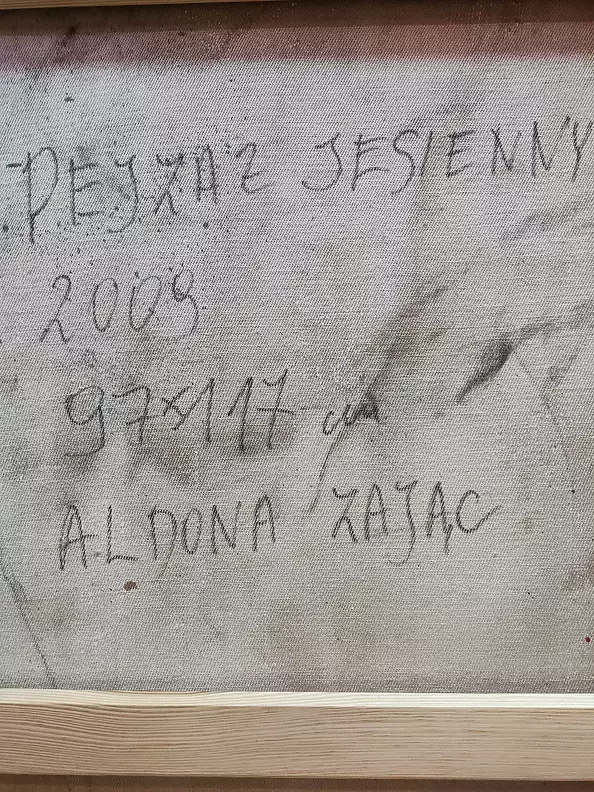 PEJZAŻ JESIENNY
2009
97x117 cm
ALDONA ZAJĄC